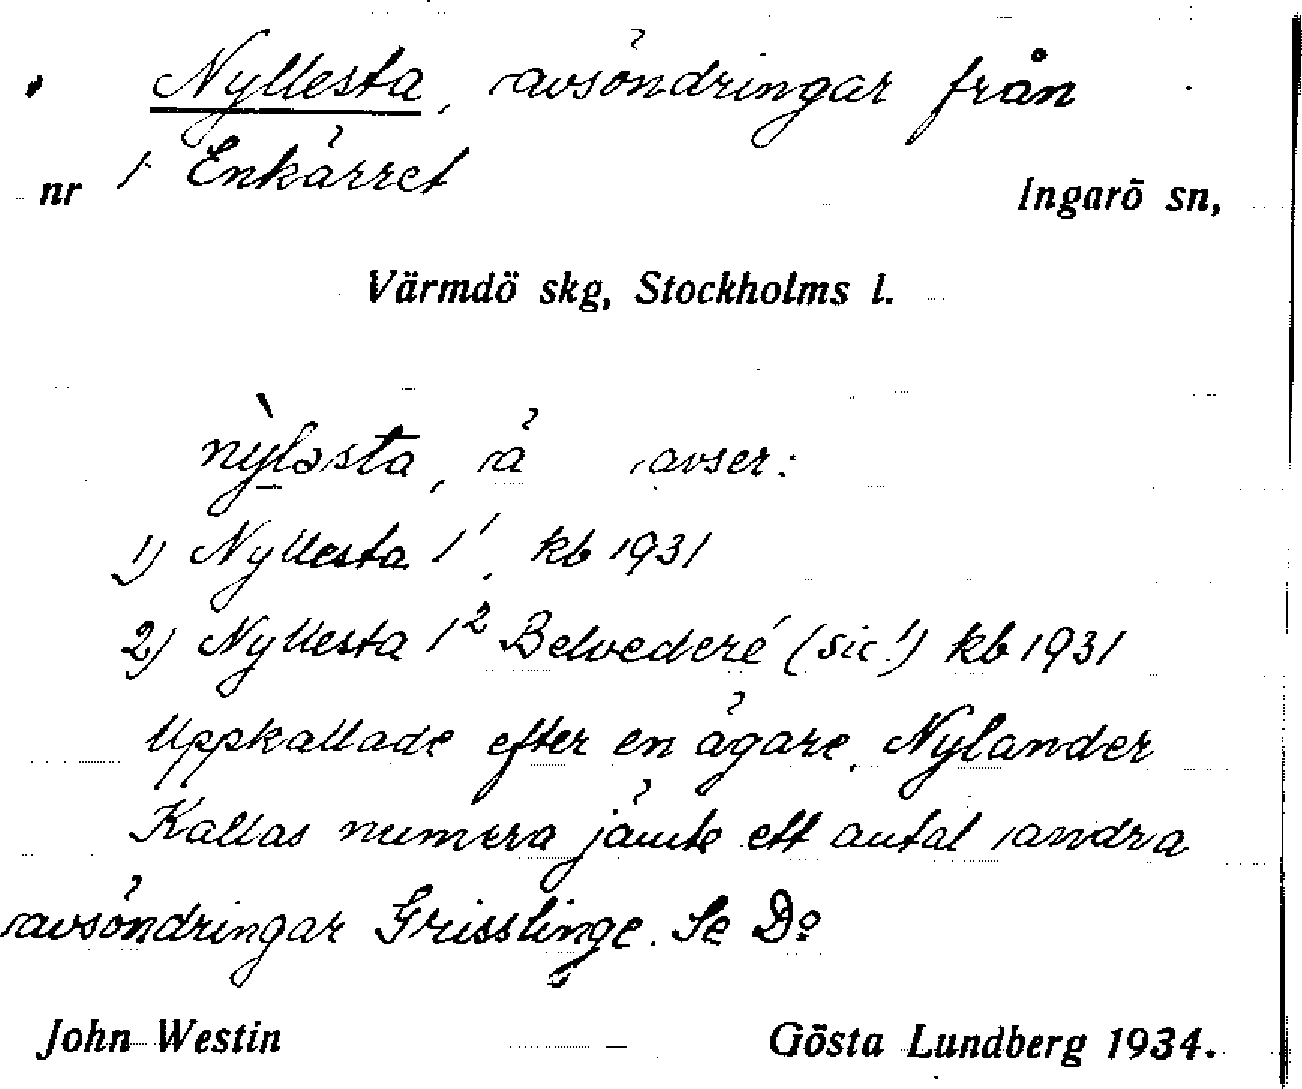 Nyllesta, avsöndringar från
nr 1 Enkärret Ingarö sn,
Värmdö skg, Stockholms l.
nỳləsta, å avser:
1) Nyllesta 1¹, kb 1931
2) Nyllesta 1² Belvederé (sic!) kb 1931
Uppkallade efter en ägare, Nylander
Kallas numera jämte ett antal andra
avsöndringar Grisslinge. Se Dº
John Westin Gösta Lundberg 1934.